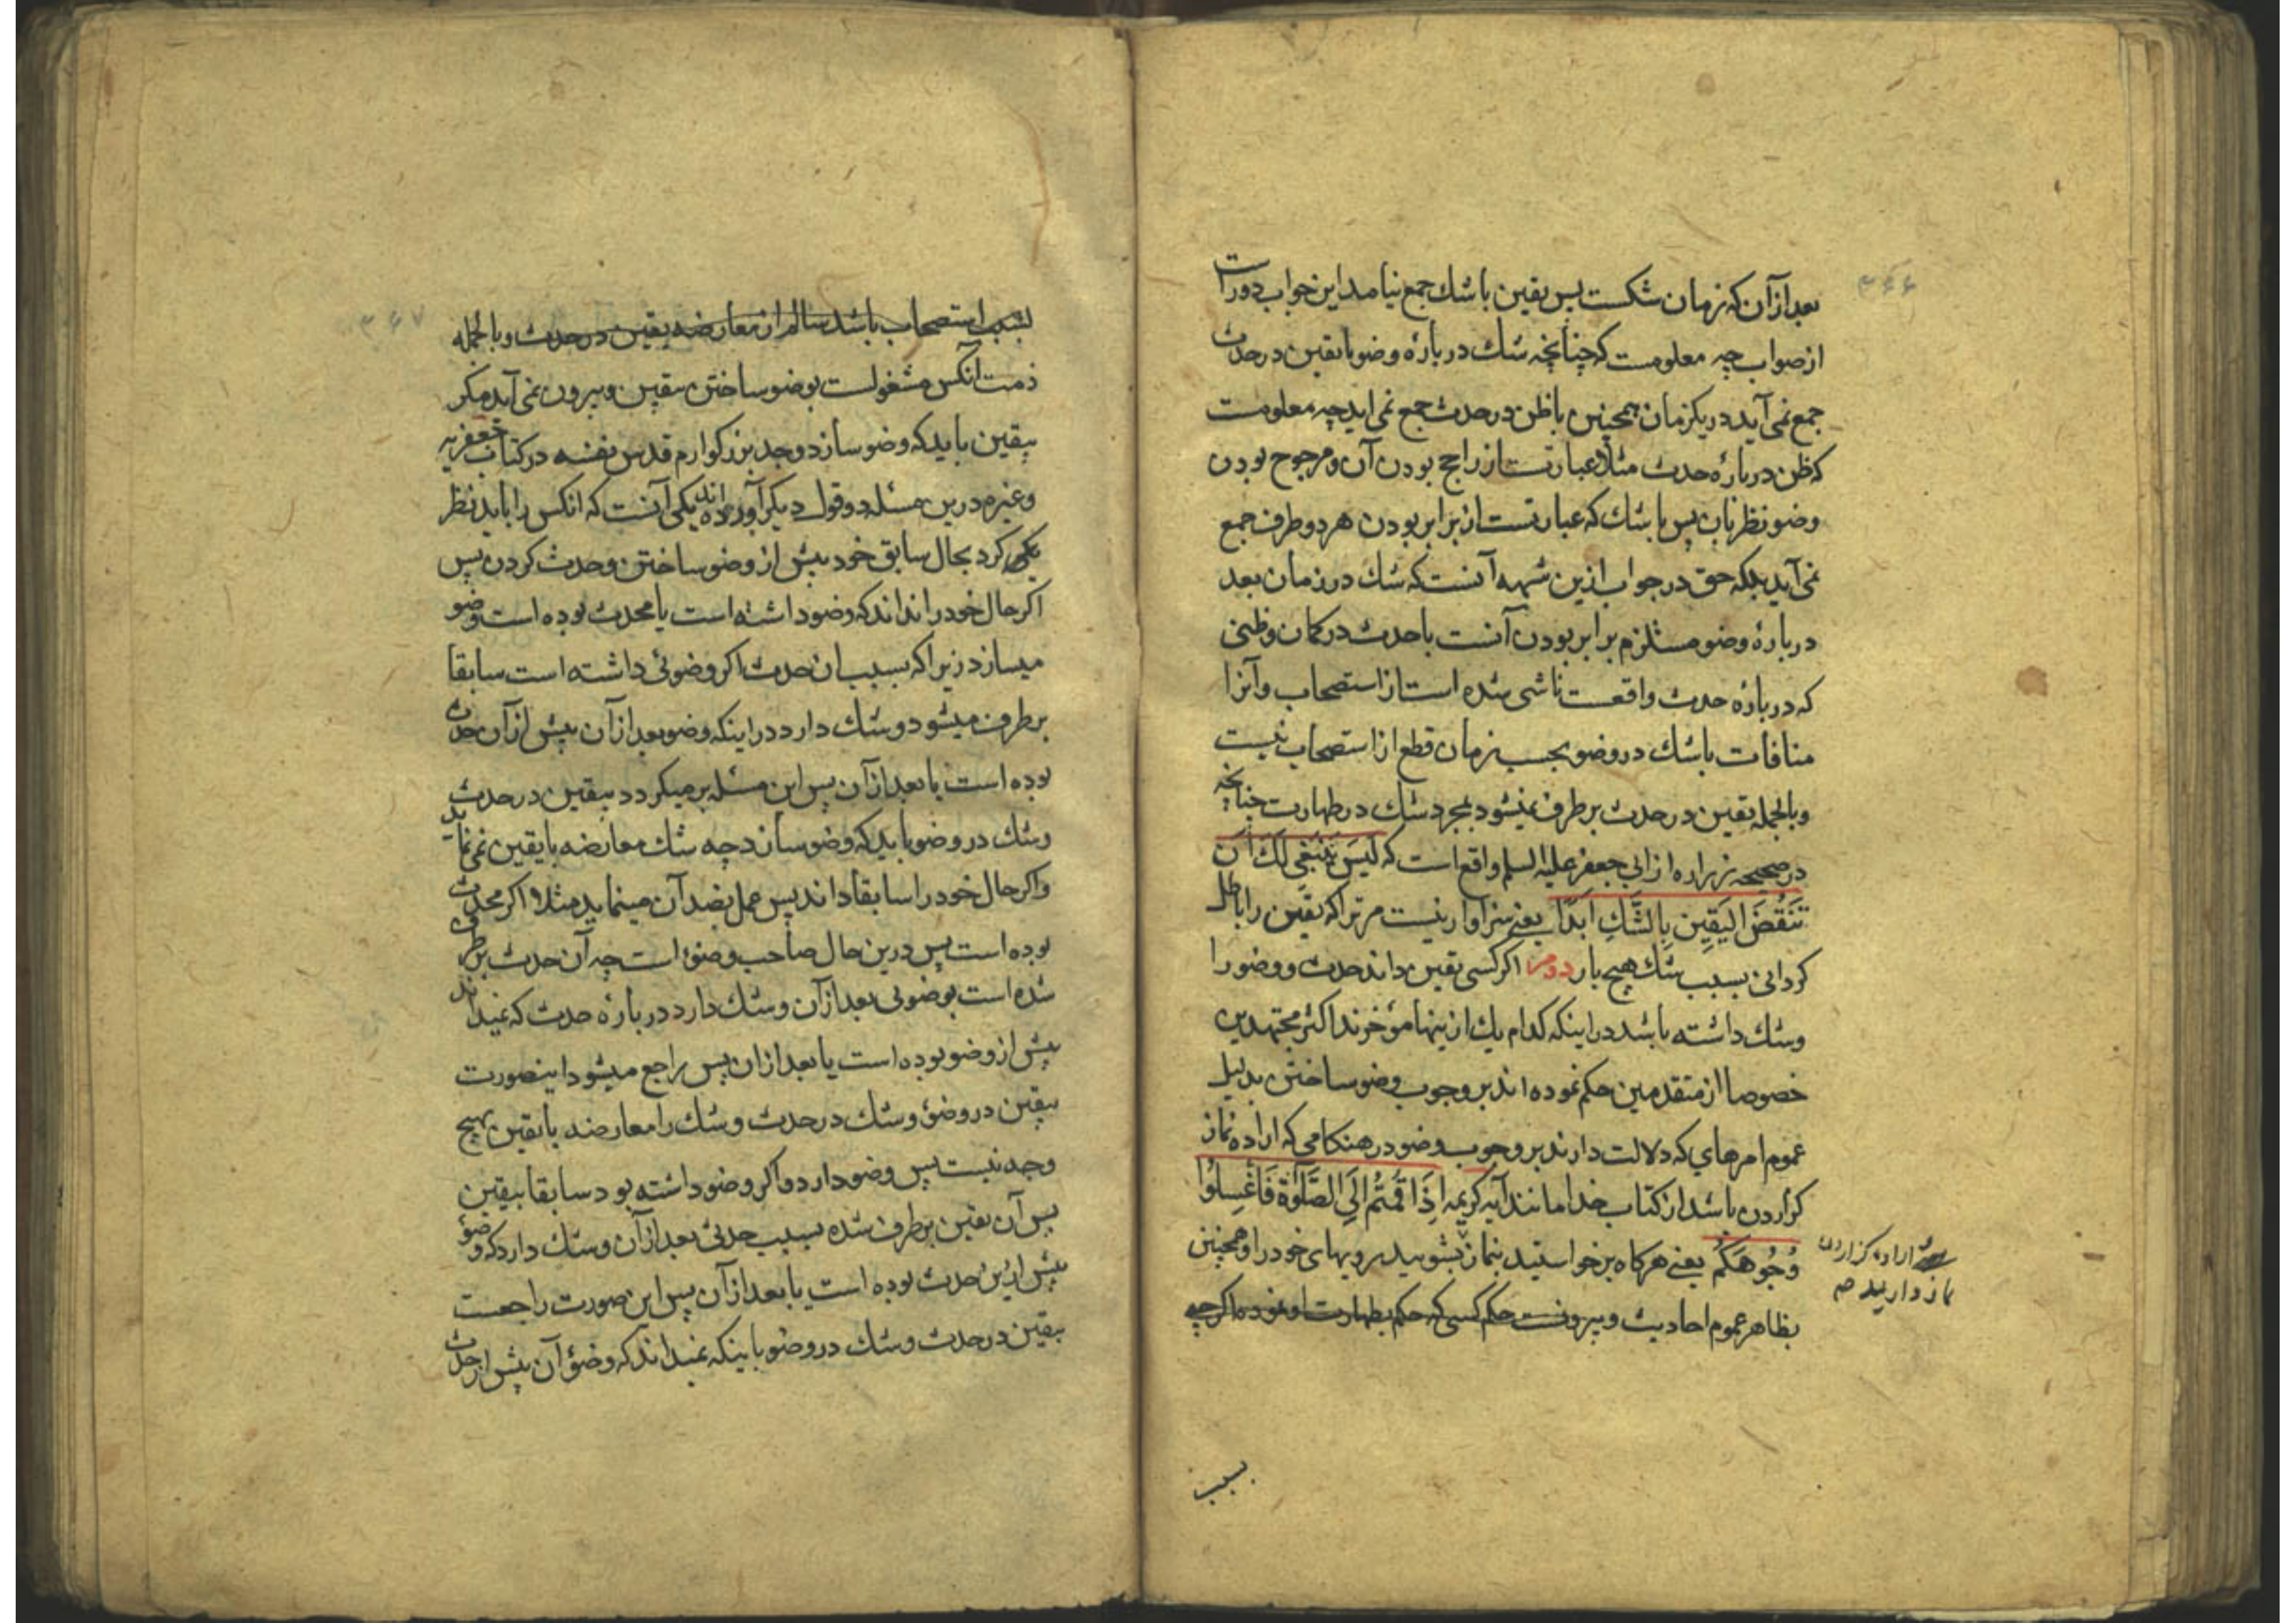 ۳۶۶
بعد از آن که زمان شکست پس یقین با شك جمع نیامد این جواب دور است
از صواب چه معلومست که چنانچه شك در بارهٔ وضو با یقین در حدث
جمع نمی آید در یکزمان همچنین با ظن در حدث جمع نمی اید چه معلومست
که ظن در بارهٔ حدث مثلا عبارتست از راجح بودن آن و مرجوح بودن
وضو نظر بان پس با شك که عبارتست از برابر بودن هر دو طرف جمع
نمی آید بلکه حق در جواب ازین شبهه آنست که شك در زمان بعد
در بارهٔ وضو مستلزم برابر بودن آنست با حدث در کمان و ظنی
که در بارهٔ حدث واقعست ناشی شده است از استصحاب و آنرا
منافات با شك در وضو بحسب زمان قطع از استصحاب نیست
و بالجمله یقین در حدث بر طرف نمیشود بمجرد شك در طهارت چنانچه
در صحیحه زراره از ابی جعفر علیه السلم واقع است که لَیسَ یَنبَغِی لَكَ اَن
تَنقُضَ الیَقِینِ بِالشَّكِ اَبَدًا یعنی سزاوار نیست مر ترا که یقین را باطل
کردانی بسبب شك هیچ بار دوم اکر کسی یقین داند حدث و وضو را
و شك داشته باشد در اینکه کدام یك از ینها مؤخرند اکثر مجتهدین
خصوصا از متقدمین حکم نموده اند بر وجوب وضو ساختن بدلیل
عموم امرهای که دلالت دارند بر وجوب وضو در هنکامی که اراده نماز
کزاردن باشد از کتاب خدا مانند آیه کریمه اِذَا قُمتُم اِلَی الصَّلٰوةِ فَاغسِلُوا
وُجُوهَکُم یعنی هرکاه بر خواستید بنماز بشویید رویهای خود را و همچنین
اراده کزاردن
نماز دارید صح
بظاهر عموم احادیث و بیرونست حکم کسی که حکم بطهارت او نموده اکر چه
بسبب
۳۶۷
بسبب استصحاب باشد سالم از معارضه یقین در حدث و بالجمله
ذمت آنکس مشغولست بوضو ساختن بیقین و بیرون نمی آید مکر
بیقین باید که وضو سازد و جد بزرکوارم قدس نفسه در کتاب جعفریه
و غیرم درین مسئله دو قول دیکر آورده اند یکی آنست که انکس را باید نظر
کرد بحال سابق خود پیش از وضو ساختن و حدث کردن پس
اکر حال خود را نداند که وضو داشته است یا محدث بوده است وضو
میسازد زیرا که بسبب ان حدث اکر وضوئی داشته است سابقا
بر طرف میشود و شك دارد در اینکه وضو بعد از آن پیش از آن حدث
بوده است یا بعد از آن پس این مسئله بر میکردد بیقین در حدث
و شك در وضو باید که وضو سازد چه شك معارضه با یقین نمی نماید
و اکر حال خود را سابقا داند پس عمل بضد آن مینماید مثلا اکر محدث
بوده است پس درین حال صاحب وضؤ است چه آن حدث بر طرف
شده است بوضوئی بعد از آن و شك دارد در بارهٔ حدث که نمیداند
پیش از وضو بوده است یا بعد از ان پس راجع میشود اینصورت
بیقین در وضؤ و شك در حدث و شك را معارضه با یقین بهیچ
وجه نیست پس وضو دارد و اکر وضو داشته بود سابقا بیقین
پس آن یقین بر طرف شده بسبب حدثی بعد از آن و شك دارد که وضؤ
پیش ازین حدث بوده است یا بعد از آن پس این صورت راجعست
بیقین در حدث و شك در وضو با ینکه نمیداند که وضؤ آن پیش از حدث